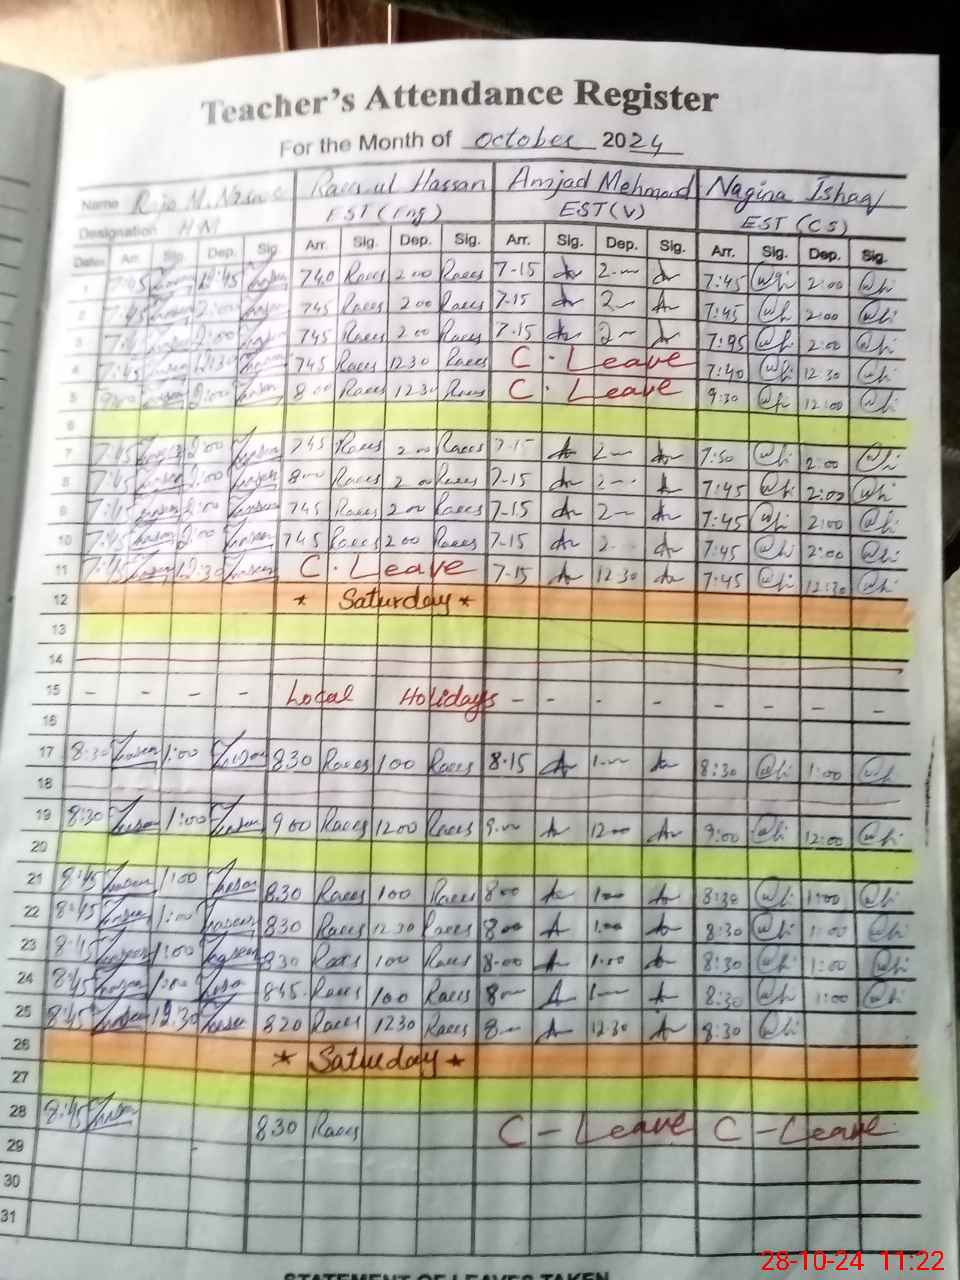 Teacher's Attendance Register
For the Month of October 2024
Name Raja M. Raees ul Hassan Amjad Mehmood Nagina Ishaq
Designation HM EST (Eng) EST (V) EST (CS)
Dates Arr. Sig. Dep. Sig. Arr. Sig. Dep. Sig. Arr. Sig. Dep. Sig. Arr. Sig. Dep. Sig.
1 7:45 12:45 740 Raees 200 Raees 7-15 2-- 7:45 2:00
2 7:45 2:00 745 Raees 200 Raees 7-15 2- 7:45 2:00
3 2:00 745 Raees 200 Raees 7-15 2- 2:00
4 7:45 12:30 745 Raees 1230 Raees C - Leave 7:40 12 30
5 800 Raees 1230 Raees C - Leave 9:30 12:00
6
7 7:45 2:00 745 Raees 200 Raees 7-15 2-- 7:50 2:00
8 7:45 2:00 8-- Raees 200 Raees 7-15 2-- 7:45 2:00
9 7:45 2:00 745 Raees 200 Raees 7-15 2-- 7:45 2:00
10 7:45 2:00 745 Raees 200 Raees 7-15 2-- 7:45 2:00
11 7:45 12:30 C - Leave 7-15 12.30 7:45 12:30
12 * Saturday *
13
14
15 - - - - Local Holidays - - - - - - - -
16
17 8:30 1:00 830 Raees 100 Raees 8.15 1-- 8:30 1:00
18
19 8:30 1:00 900 Raees 1200 Raees 9-- 1200 9:00 12:00
20
21 8:45 1:00 830 Raees 100 Raees 800 1-- 8:30 1:00
22 8:45 1:00 830 Raees 1230 Raees 800 1.00 8:30 1:00
23 8:45 1:00 830 Raees 100 Raees 8-00 1.00 8:30 1:00
24 8:45 1:00 845 Raees 100 Raees 8-- 1-- 8:30 1:00
25 8:45 12:30 820 Raees 1230 Raees 8-- 12.30 8:30
26 * Saturday *
27
28 8:45 830 Raees C - Leave C - Leave
29
30
31
STATEMENT OF LEAVES TAKEN
28-10-24 11:22